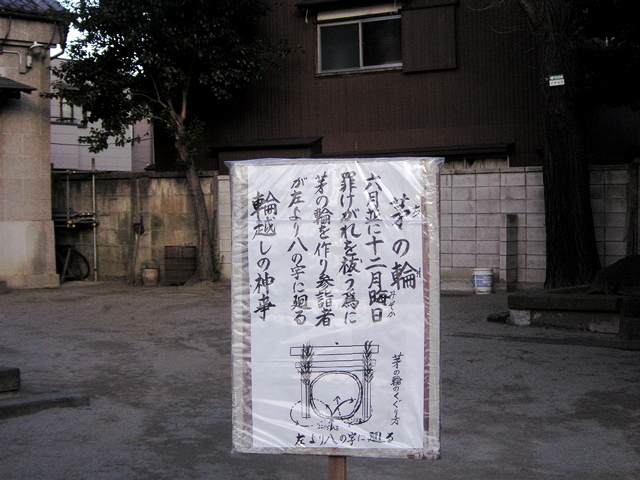 茅の輪
ち
わ
六月並に十二月晦日
みそか
罪けがれを祓う為に
茅の輪を作り参詣者
が左より八の字に廻る
輪越しの神事
茅の輪のくぐり方
左より八の字に廻る